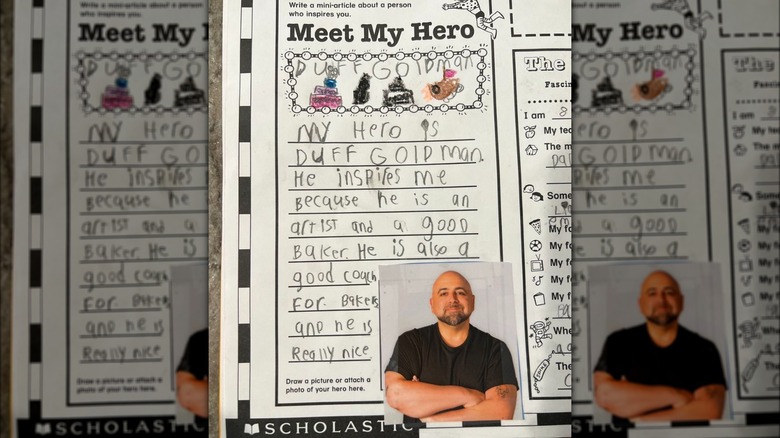 Write a mini-article about a person
who inspires you.
Meet My Hero
DUFF GOlDman
My Hero is
DUFF GOlDman.
He inspires me
Because he is an
artist and a good
Baker. He is also a
good coach
For Bakers
and he is
Really nice
Draw a picture or attach a
photo of your hero here.
SCHOLASTIC
The
Fascin
I am 8
My tea
The m
Some
My fa
My fa
My fa
My fa
Whe